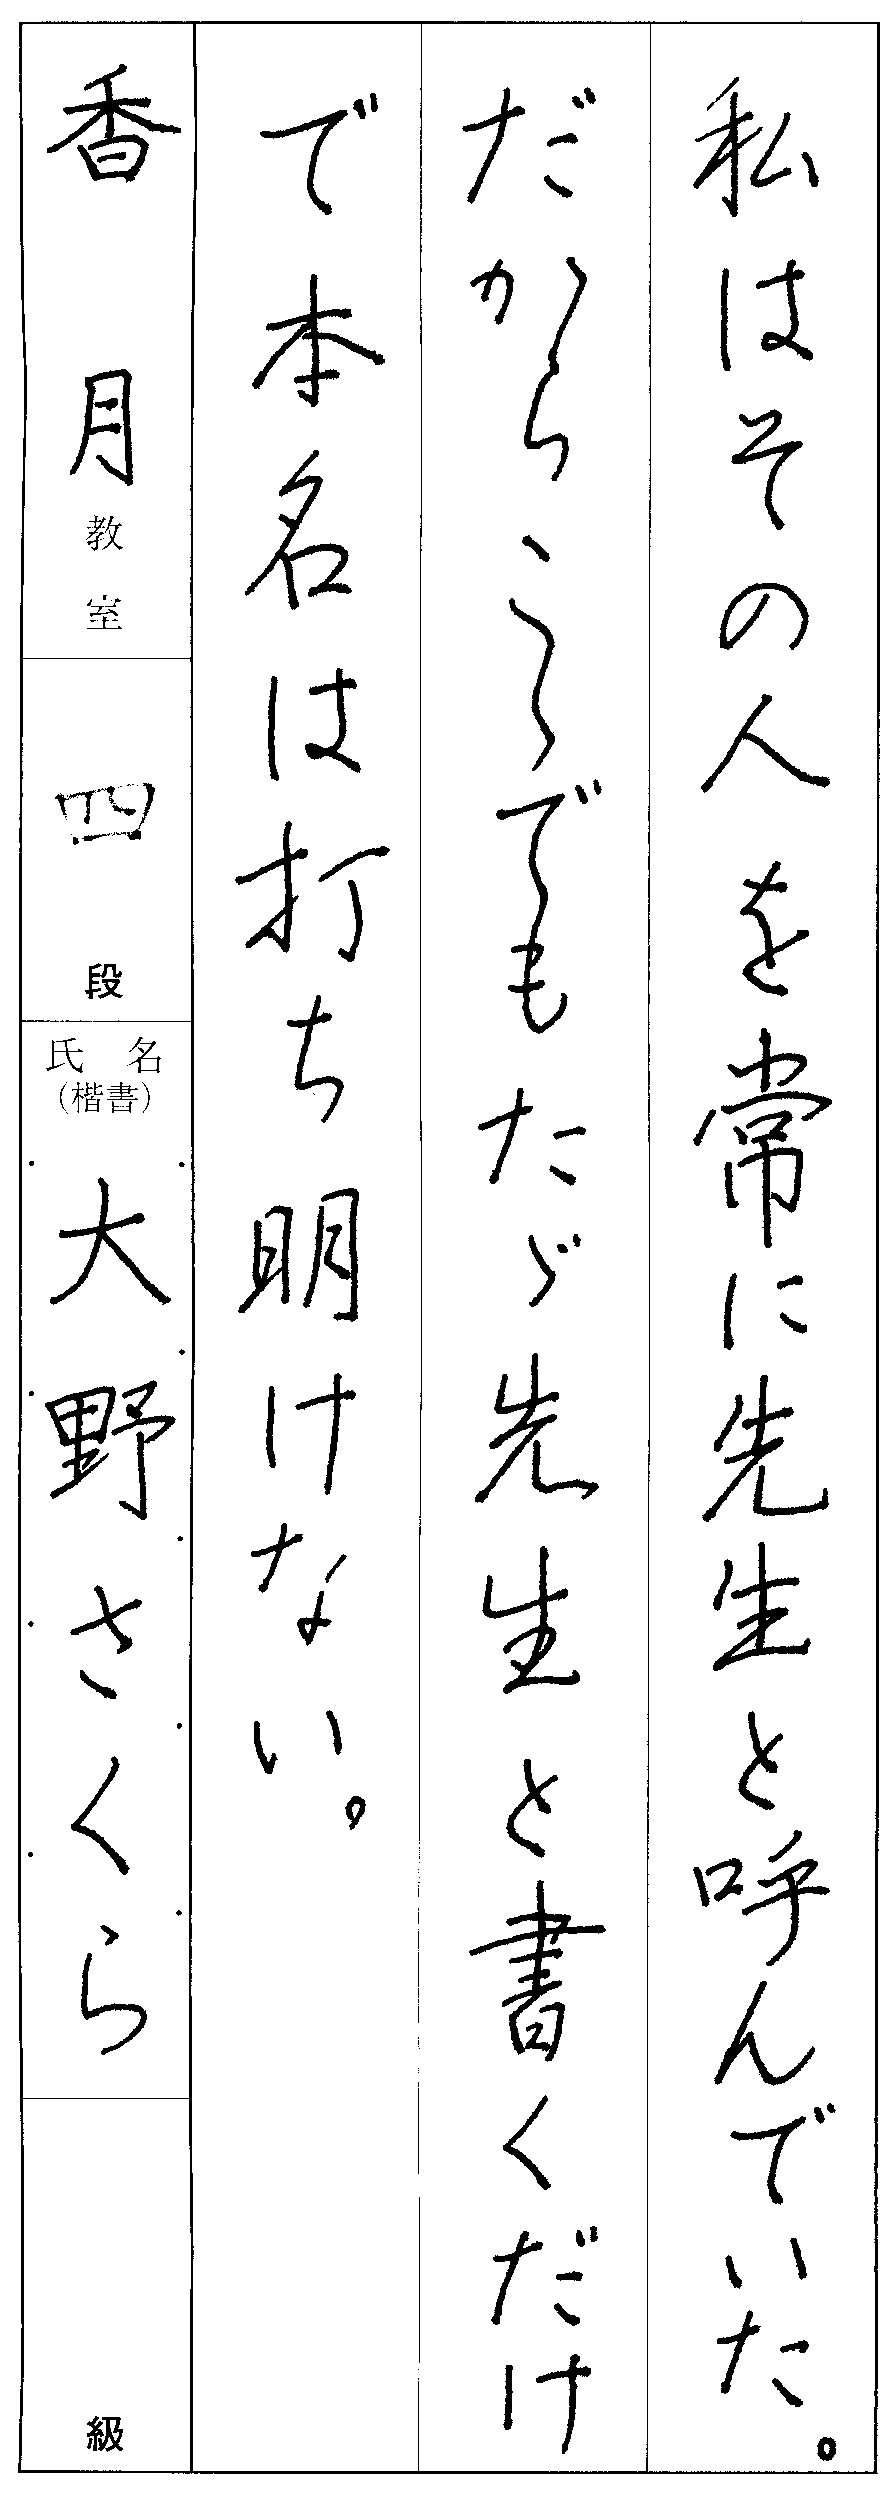 私はその人を常に先生と呼んでいた。
だからこゝでもたゞ先生と書くだけ
で本名は打ち明けない。
香月教室
四段
氏名
(楷書)
大野さくら
級